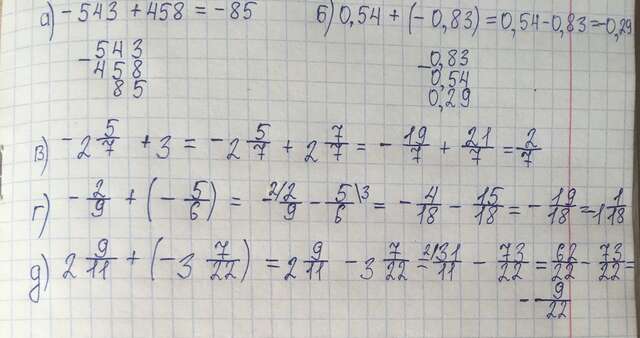 а) -543 + 458 = -85 б) 0,54 + (-0,83) = 0,54 - 0,83 = -0,29
-543 -0,83
458 0,54
85 0,29
в) -2 5/7 + 3 = -2 5/7 + 2 7/7 = -19/7 + 21/7 = 2/7
г) -2/9 + (-5/6) = -2/9 - 5/6 \3 = -4/18 - 15/18 = -19/18 = -1 1/18
д) 2 9/11 + (-3 7/22) = 2 9/11 - 3 7/22 = 2/ 31/11 - 73/22 = 62/22 - 73/22 =
- 9/22